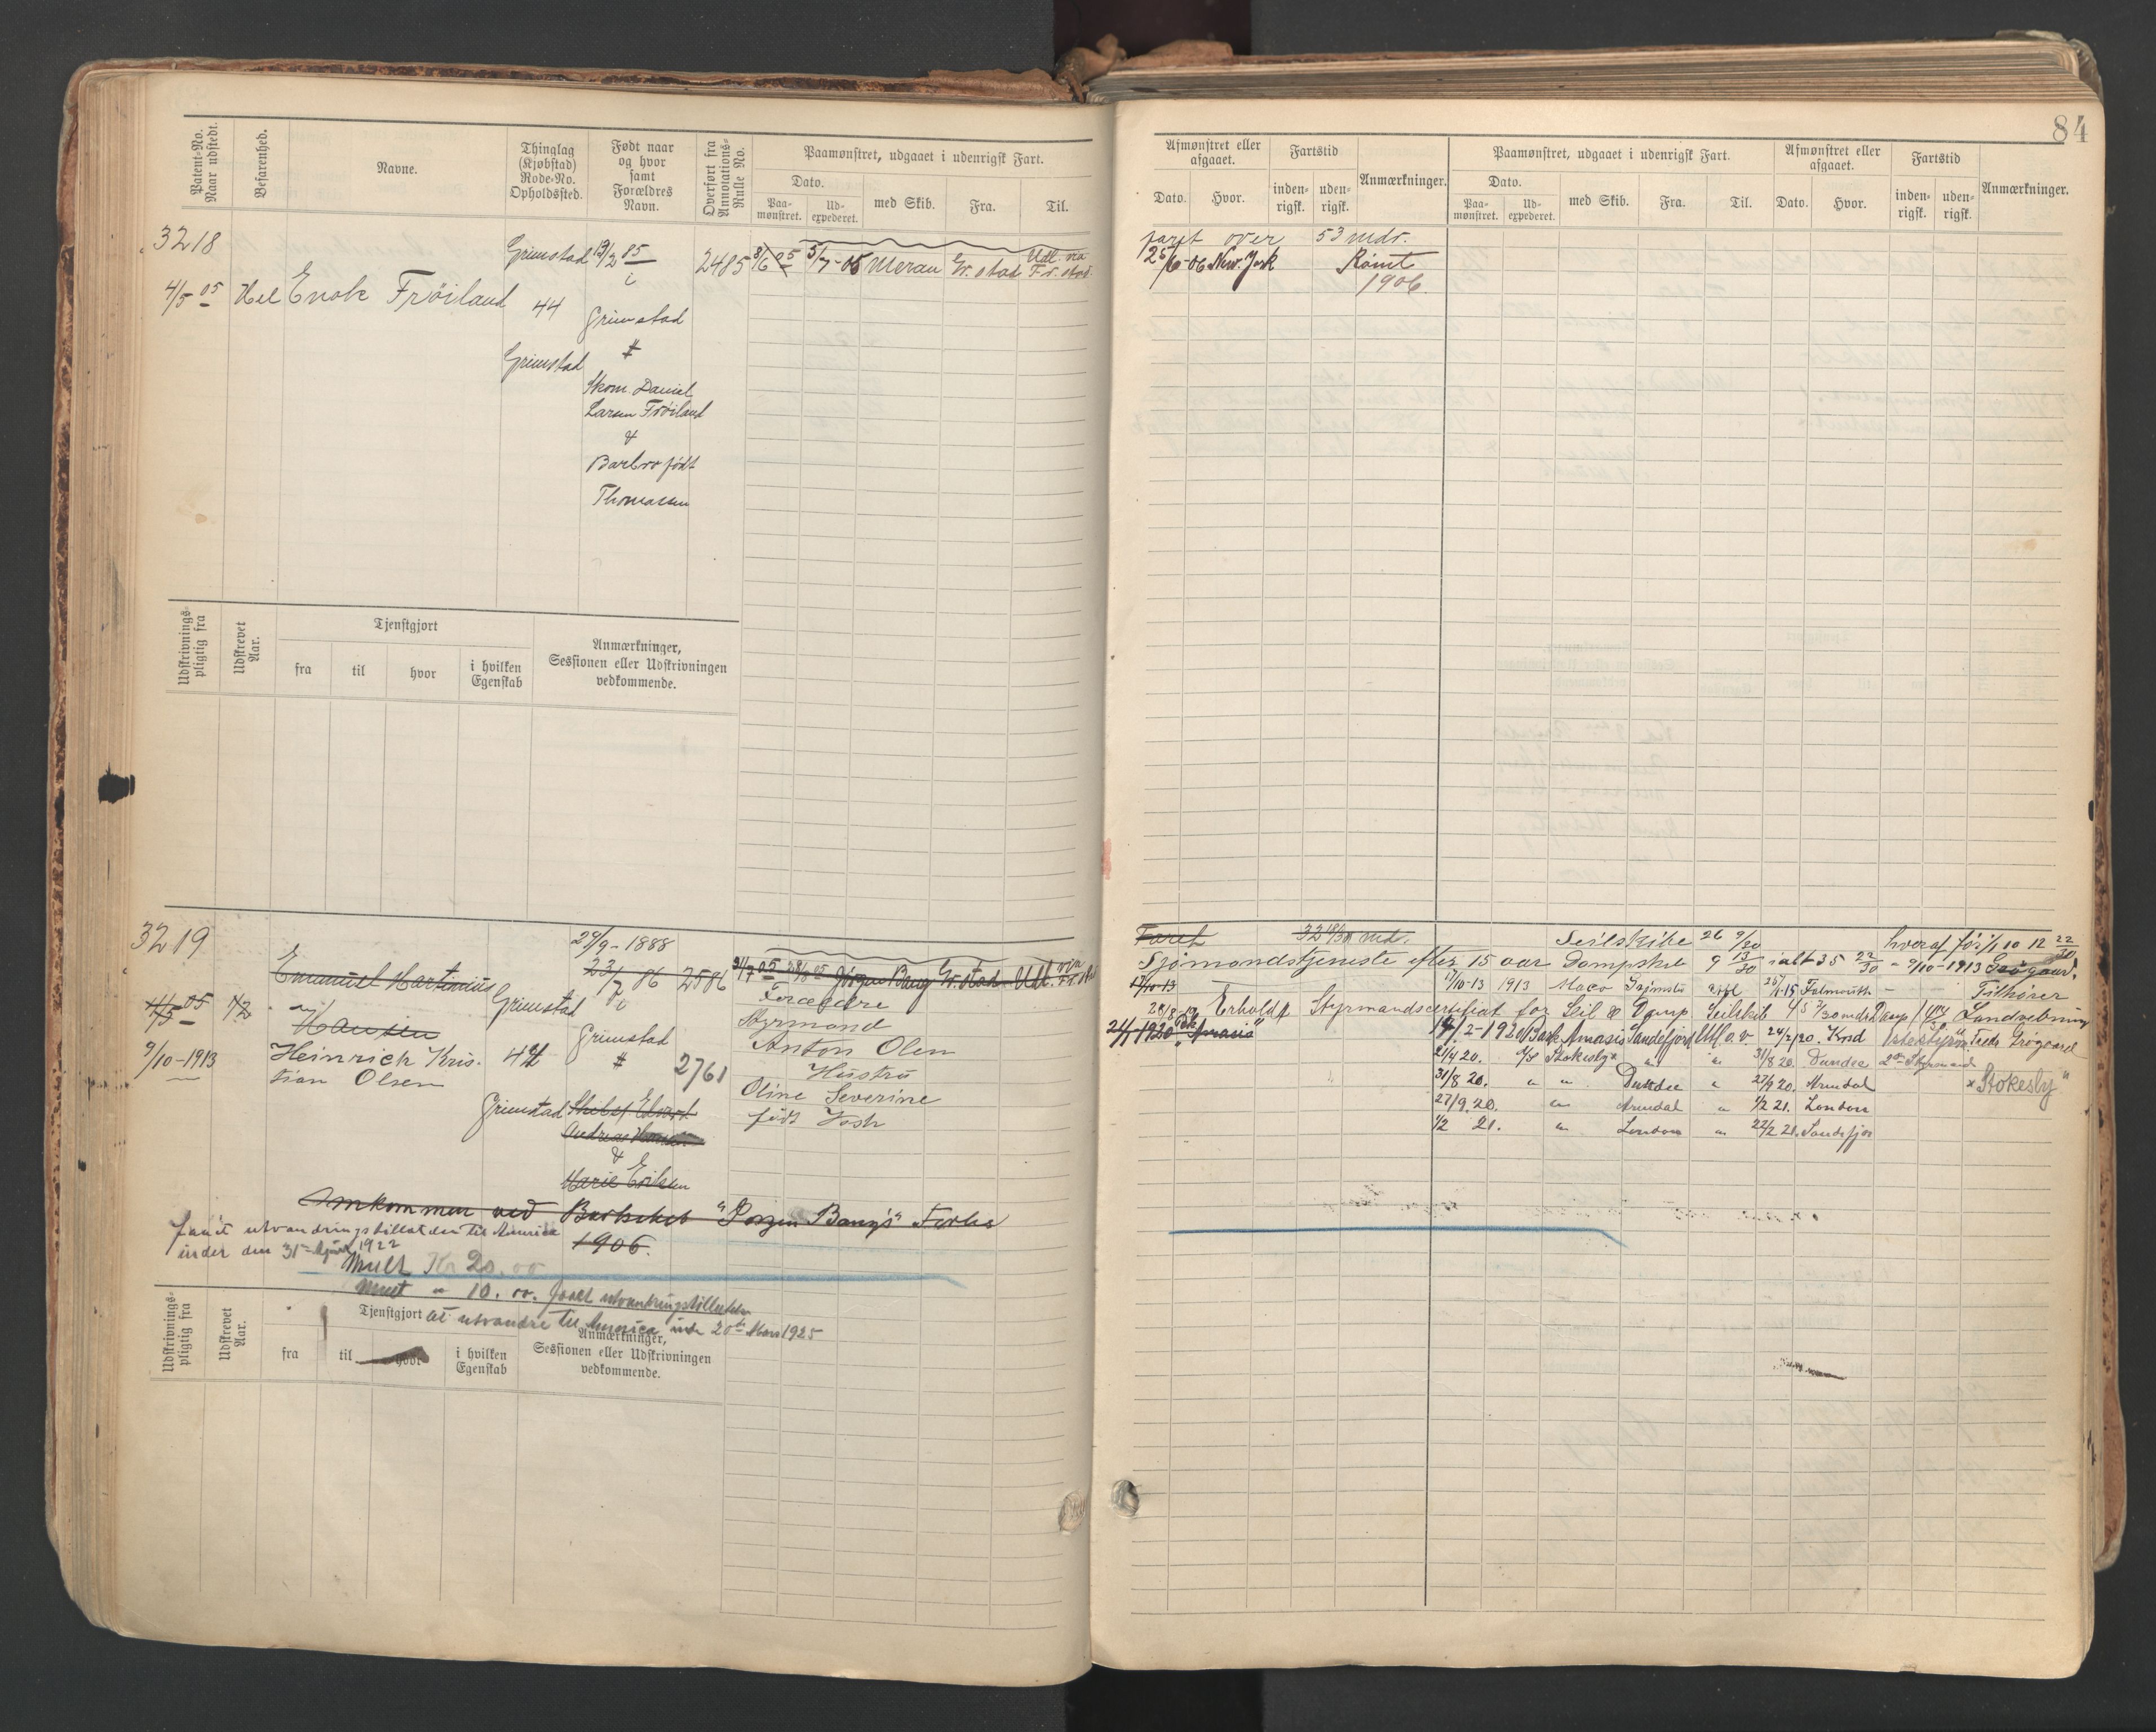 84
Patent-No.
Naar udstedt.
Befarenhed.
Navne.
Thinglag
(Kjøbstad)
Rode-No.
Opholdssted.
Født naar
og hvor
samt
Forældres
Navn.
Overført fra
Annotations-
Rulle No.
Paamønstret, udgaaet i udenrigsk Fart.
Dato.
Paa-
mønstret.
Ud-
expederet.
med Skib.
Fra.
Til.
Afmønstret eller
afgaaet.
Dato.
Hvor.
Fartstid
inden-
rigsk.
uden-
rigsk.
Anmærkninger.
Paamønstret, udgaaet i udenrigsk Fart.
Dato.
Paa-
mønstret.
Ud-
expederet.
med Skib.
Fra.
Til.
Afmønstret eller
afgaaet.
Dato.
Hvor.
Fartstid
inden-
rigsk.
uden-
rigsk.
Anmærkninger.
3218
4/5 05
Hel
Enok Frøiland
Grimstad
44
Grimstad
13/2 85
i
Grimstad
#
Skom. Daniel
Larsen Frøiland
&
Barbro født
Thomassen
2485
8/6 05 5/7-05 Meran Gr.stad Udl. via
Fr.stad
faret over 53 mdr.
25/6-06 New. York Rømt
1906
Udskrivnings-
pligtig fra
Udskrevet
Aar.
Tjenstgjort
fra
til
hvor
i hvilken
Egenskab
Anmærkninger,
Sessionen eller Udskrivningen
vedkommende.
3219
4/5 05
9/10-1913
1/2
Emanuel Martinius
Hansen
Heinrich Kris-
tian Olsen
Grimstad
44
Grimstad
29/9-1888
23/7 86
i
Grimstad
#
Skibst Edvard
Andreas Hansen
&
Marie Eriksen
2586
2761
31/7 05 28/8 05 Jørgen Bang Gr.stad Udl. via
Forældre
Styrmand
Anton Olsen
Hustru
Oline Severine
født
Omkommen ved Barkskib "Jørgen Bang's" Forlis
1906.
faaet utvandringstilladelse til Amerika
under den 31 1922
Mult Kr 20.00
Mult " 10.00. faaet utvandringstilladelse
at utvandre til Amerika under 20de Mars 1925
Faret 32 md.
Seilskibe 26 9/30 hveraf før 12 22/30
Sjømandstjeneste efter 15 aar Dampskib 9 13/30 ialt 35 22/30 - 9/10-1913
17/10-13 17/10-13 1913 Grimstad Falmouth - - Tilhører
Erholdt Styrmandscertifikat for Seil & Damp Seilskib 45 7/30 mdr Damp
24/1-1920 "Amasis" 1920 Bark Amasis Sandefjord 24/2 20. 1ste Styrm
21/4 20. D/S Stokesby " " 31/8 20. Dundee 2den Styrmand
31/8 20. " " Dundee " 27/9 20. Arendal "Stokesby"
27/9. 20. " Arendal " 1/2 21. London
1/2 21. " London " 22/2 21. Sandefjor
Udskrivnings-
pligtig fra
Udskrevet
Aar.
Tjenstgjort
fra
til
hvor
i hvilken
Egenskab
Anmærkninger,
Sessionen eller Udskrivningen
vedkommende.